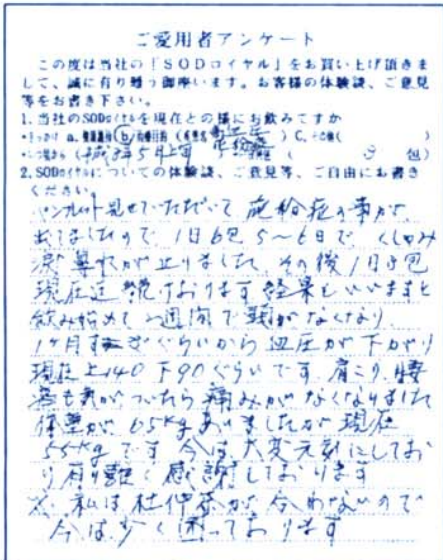 ご愛用者アンケート
この度は当社の「SODロイヤル」をお買い上げ頂きま
して、誠に有り難う御座います。お客様の体験談、ご意見
等をお書き下さい。
1.当社のSODロイヤルを現在どの様にお飲みですか
・きっかけ a.健康維持 b.治療目的 (有病名 高血圧 花粉症) C.その他( )
・いつ頃から (平成8年5月上旬 ( 3 包)
2.SODロイヤルについての体験談、ご意見等、ご自由にお書き
ください。
パンフレット見せていただいて 花粉症の事が
出てましたので 1日6包 5〜6日で くしゃみ
涙 鼻水が止りました。その後1日3包
現在迄 続けおります 結果をいいますと
飲み始めて 一週間で 頭がなくなり
1ヶ月すぎぐらいから 血圧が下がり
現在上140 下90ぐらいです。肩こり、腰
痛も気がついたら 痛みがなくなりました
体重が 65kgありましたが 現在
55kgです 今は 大変元気にしてお
り有り難く感謝しております
※ 私は 杜仲茶が 合わないので
今は少く 困っております